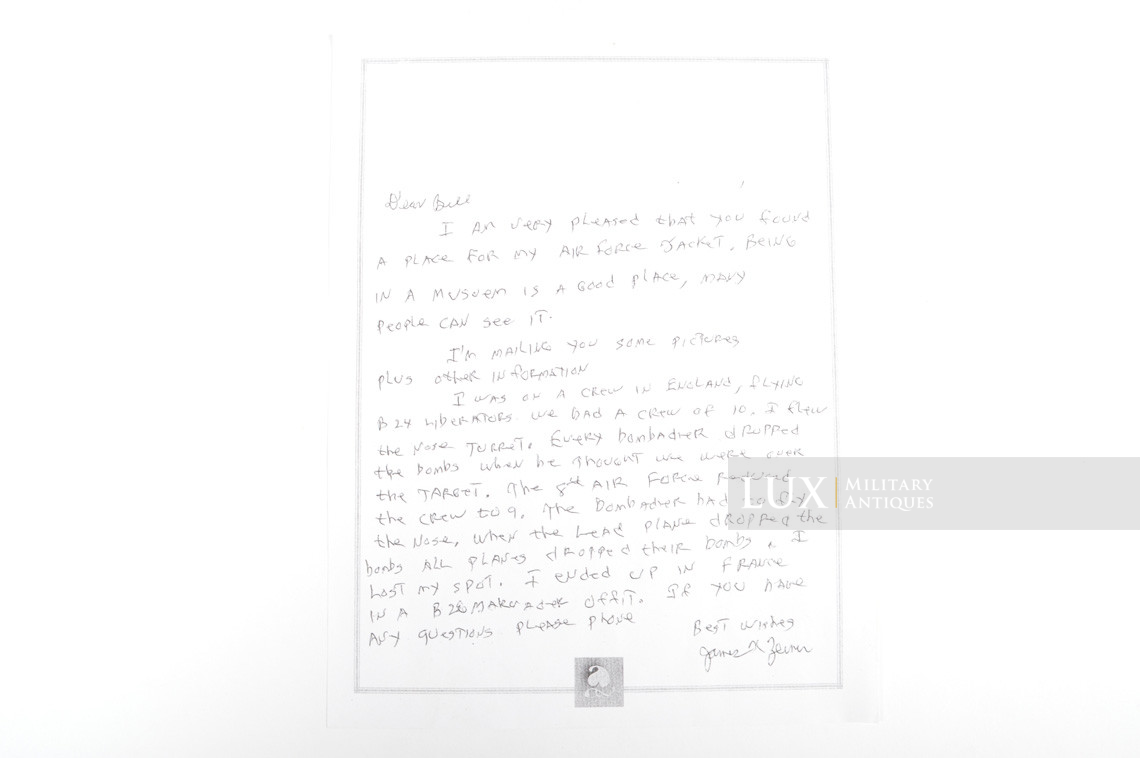 Dear Bill
I AM very pleased that you found
A PLACE FOR MY AIR FORCE JACKET, BEING
IN A MUSUEM IS A GOOD PLACE, MANY
PEOPLE CAN see IT.
I'M MAILING YOU SOME PICTURES
PLUS OTHER INFORMATION
I WAS ON A CREW IN ENGLAND, FLYING
B24 LIBERATORS. WE HAD A CREW OF 10. I flew
the NOSE TURRET. EVERY bombadier dropped
the bombs when he THOUGHT WE WERE OVER
the TARGET. The 8th AIR FORCE
the CREW to 9. The BOMBADIER HAD
the NOSE, WHEN the LEAD PLANE DROPPED the
bombs ALL PLANES DROPPED their bombs. I
LOST MY SPOT. I ENDED UP IN FRANCE
IN A If YOU HAVE
ANY QUESTIONS PLEASE PHONE
BEST WISHES
James
LUX MILITARY
ANTIQUES